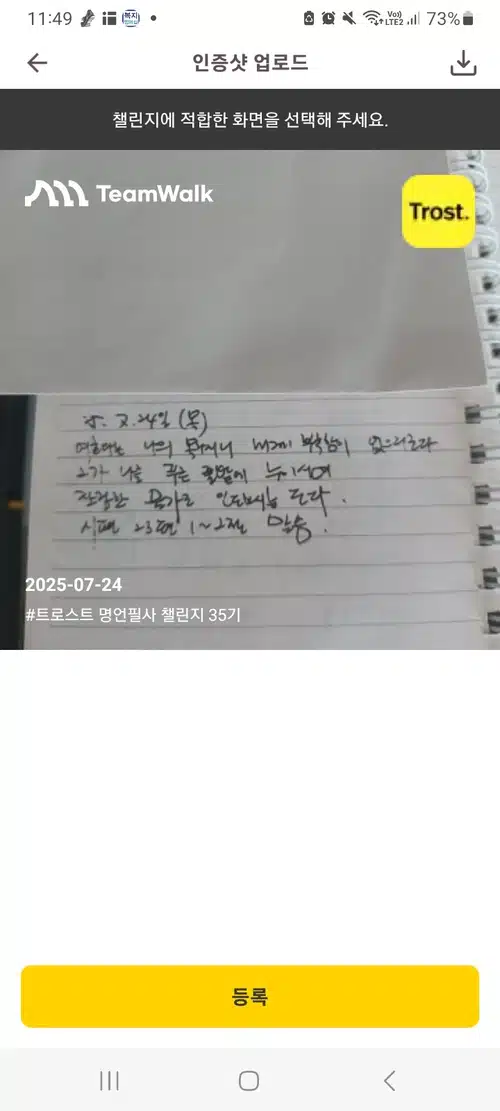 11:49
복지
Vo))
LTE2
73%
인증샷 업로드
챌린지에 적합한 화면을 선택해 주세요.
TeamWalk
Trost.
25. 7. 24일 (목)
여호와는 나의 목자시니 내게 부족함이 없으리로다
그가 나를 푸른 풀밭에 누이시며
잔잔한 물가로 인도하시는 도다.
시편 23편 1~2절 말씀.
2025-07-24
#트로스트 명언필사 챌린지 35기
등록